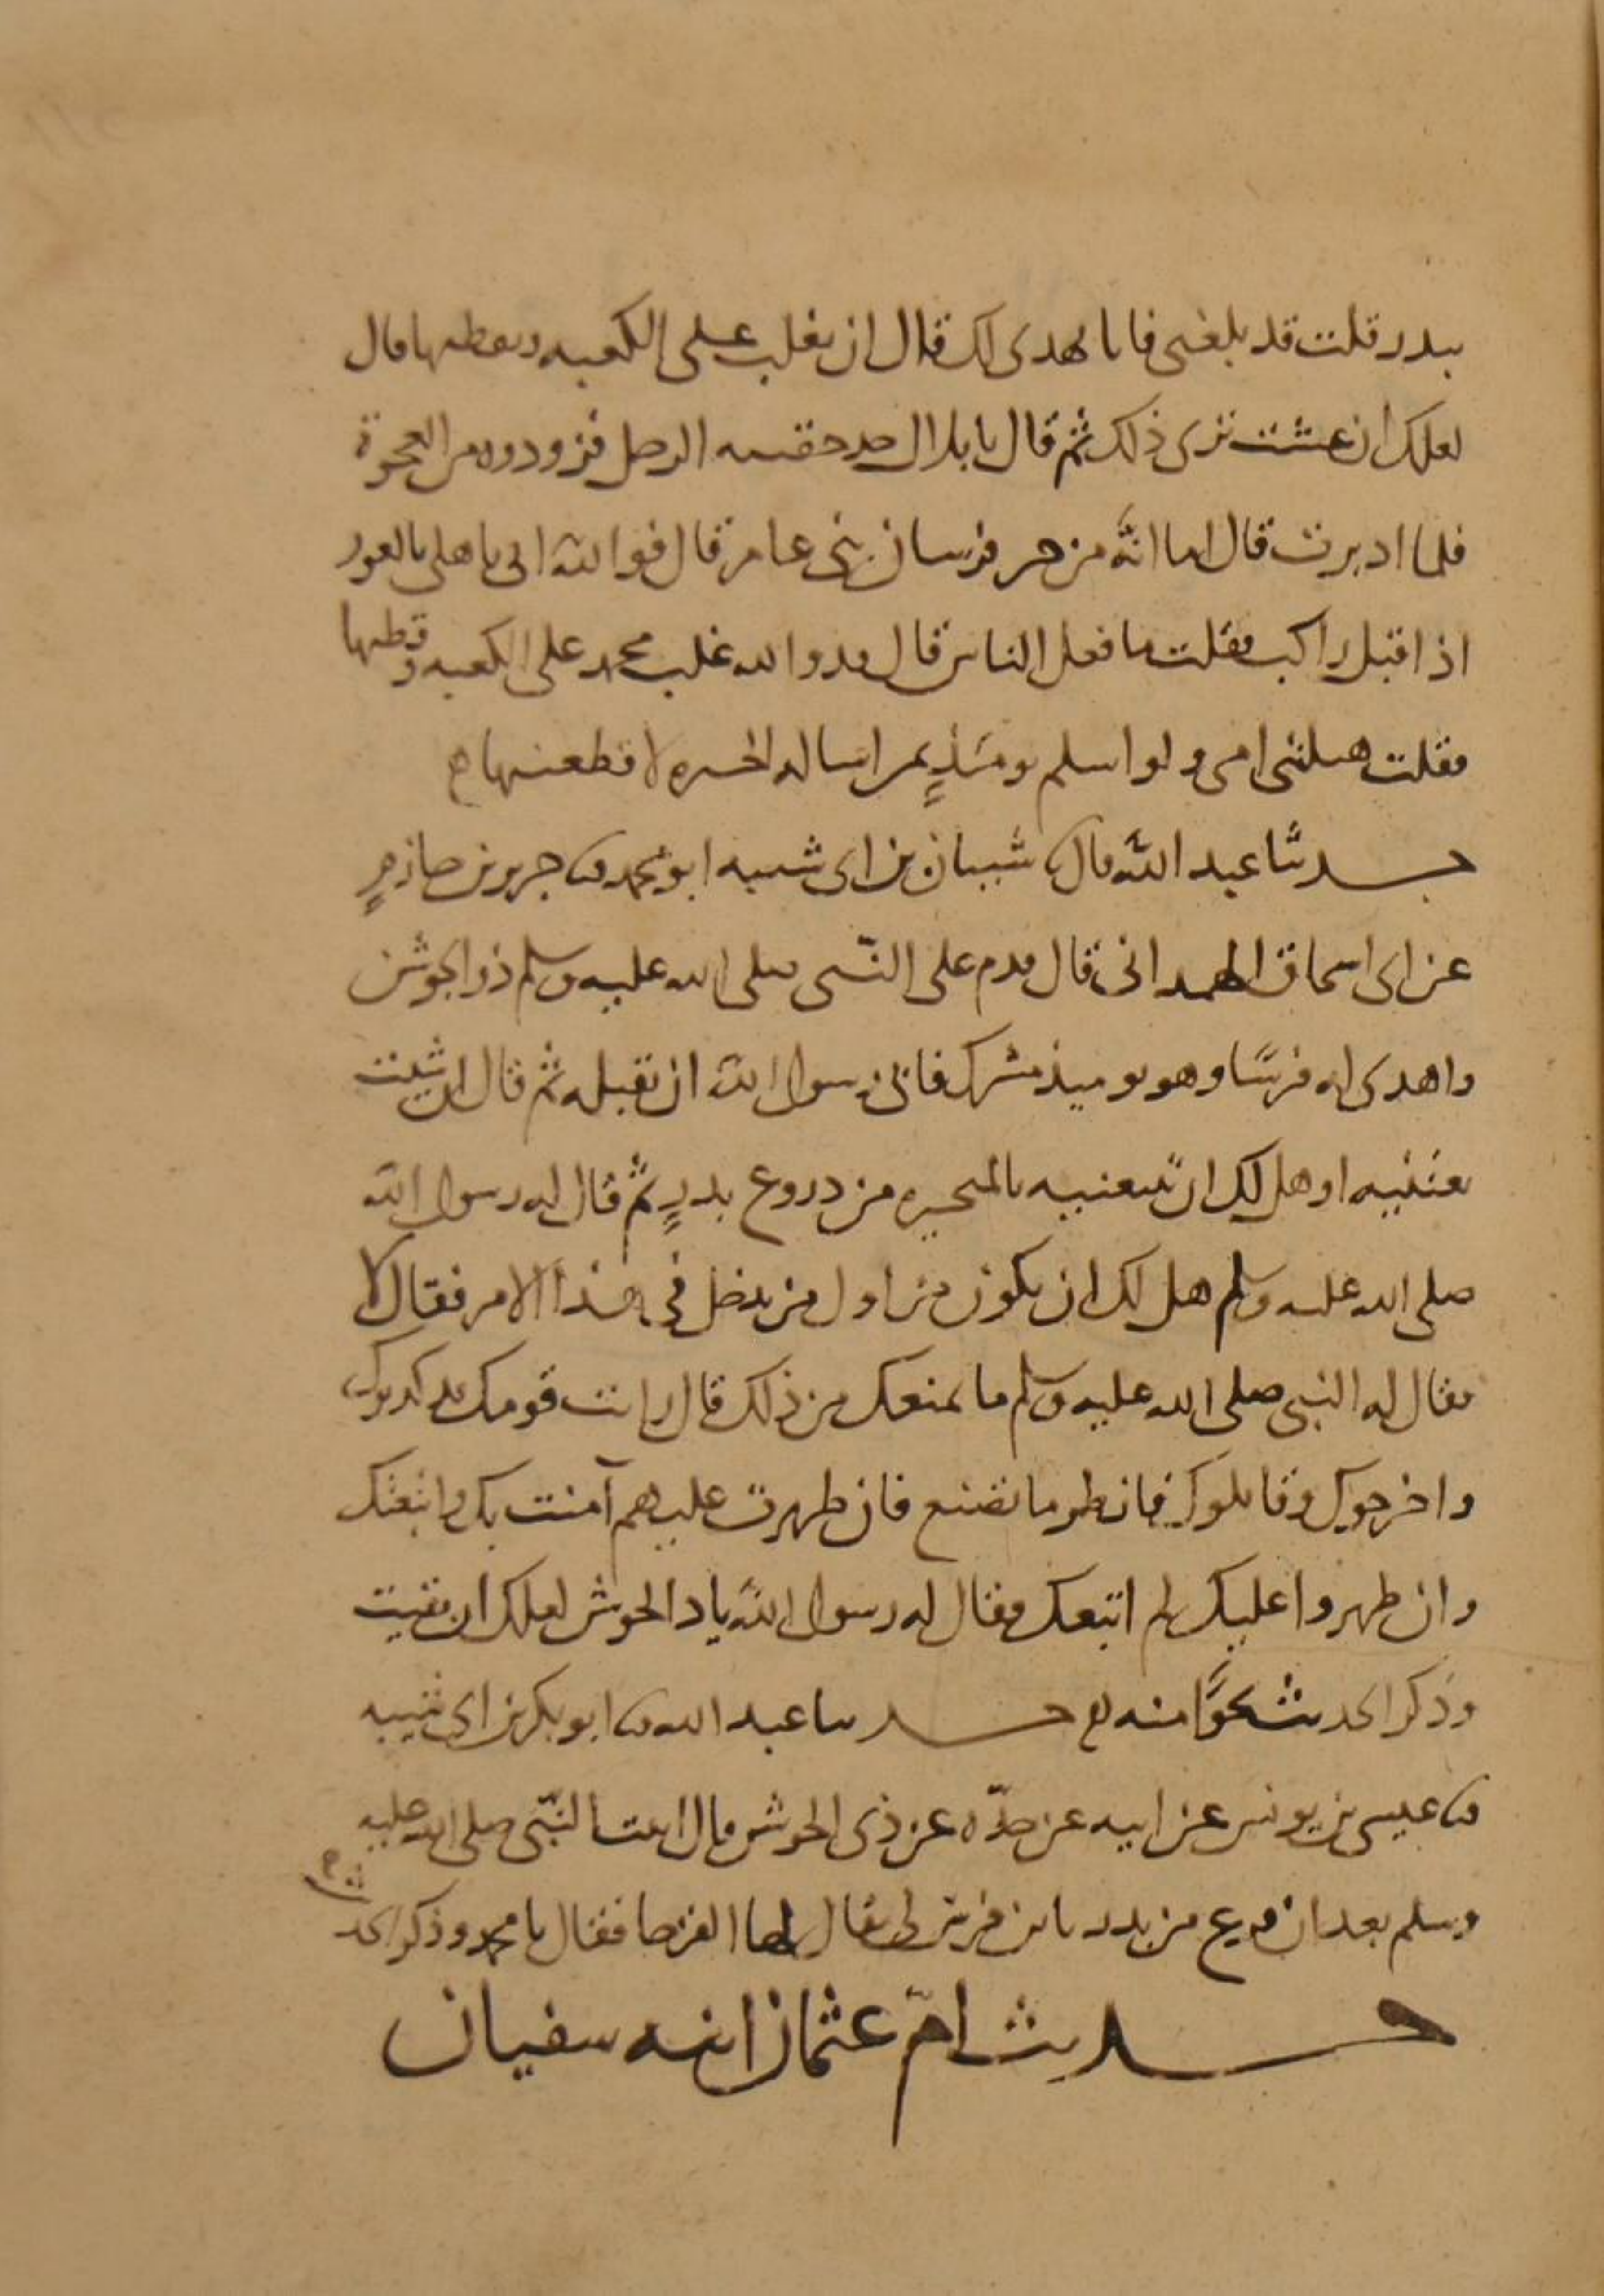 ببدر قلت قد بلغني فانا نهدي لك قال ان تغلب على الكعبه وتقطنها قال
لعلك ان عشت ترى ذلك ثم قال يا بلال خذ حقيبه الرجل فزوده من العجوة
فلما ادبرت قال اما انه من خير فرسان بني عامر قال فوالله اني باهلي بالغور
اذ اقبل راكب فقلت ما فعل الناس قال قد والله غلب محمد على الكعبه وقطنها
فقلت هبلتني امي ولو اسلم يومئذ ثم اساله الحيره لاقطعنيها
حدثنا عبد الله قال شيبان بن ابي شيبه ابو محمد جرير بن حازم
عن ابي اسحاق الهمداني قال قدم على النبي صلى الله عليه وسلم ذو الجوشن
واهدى له فرسا وهو يوميذ مشرك فابى رسول الله ان يقبله ثم قال ان شيت
بعتنيه او هل لك ان تبيعنيه بالمتخيره من دروع بدر ثم قال له رسول الله
صلى الله عليه وسلم هل لك ان تكون من اول من يدخل في هذا الامر فقال لا
فقال له النبي صلى الله عليه وسلم ما يمنعك من ذلك قال رايت قومك قد كذبوك
واخرجوك وقاتلوك فانظر ما تصنع فان ظهرت عليهم آمنت بك واتبعتك
وان ظهروا عليك لم اتبعك فقال له رسول الله يا ذا الجوشن لعلك ان بقيت
وذكر الحديث نحوا منه حدثنا عبد الله ابو بكر بن ابي شيبه
عيسى بن يونس عن ابيه عن جده عن ذي الجوشن قال اتيت النبي صلى الله عليه
وسلم بعد ان فرغ من بدر بابن فرس لي يقال لها القرحا فقال يا محمد وذكر الحديث
حديث ام عثمان ابنه سفيان